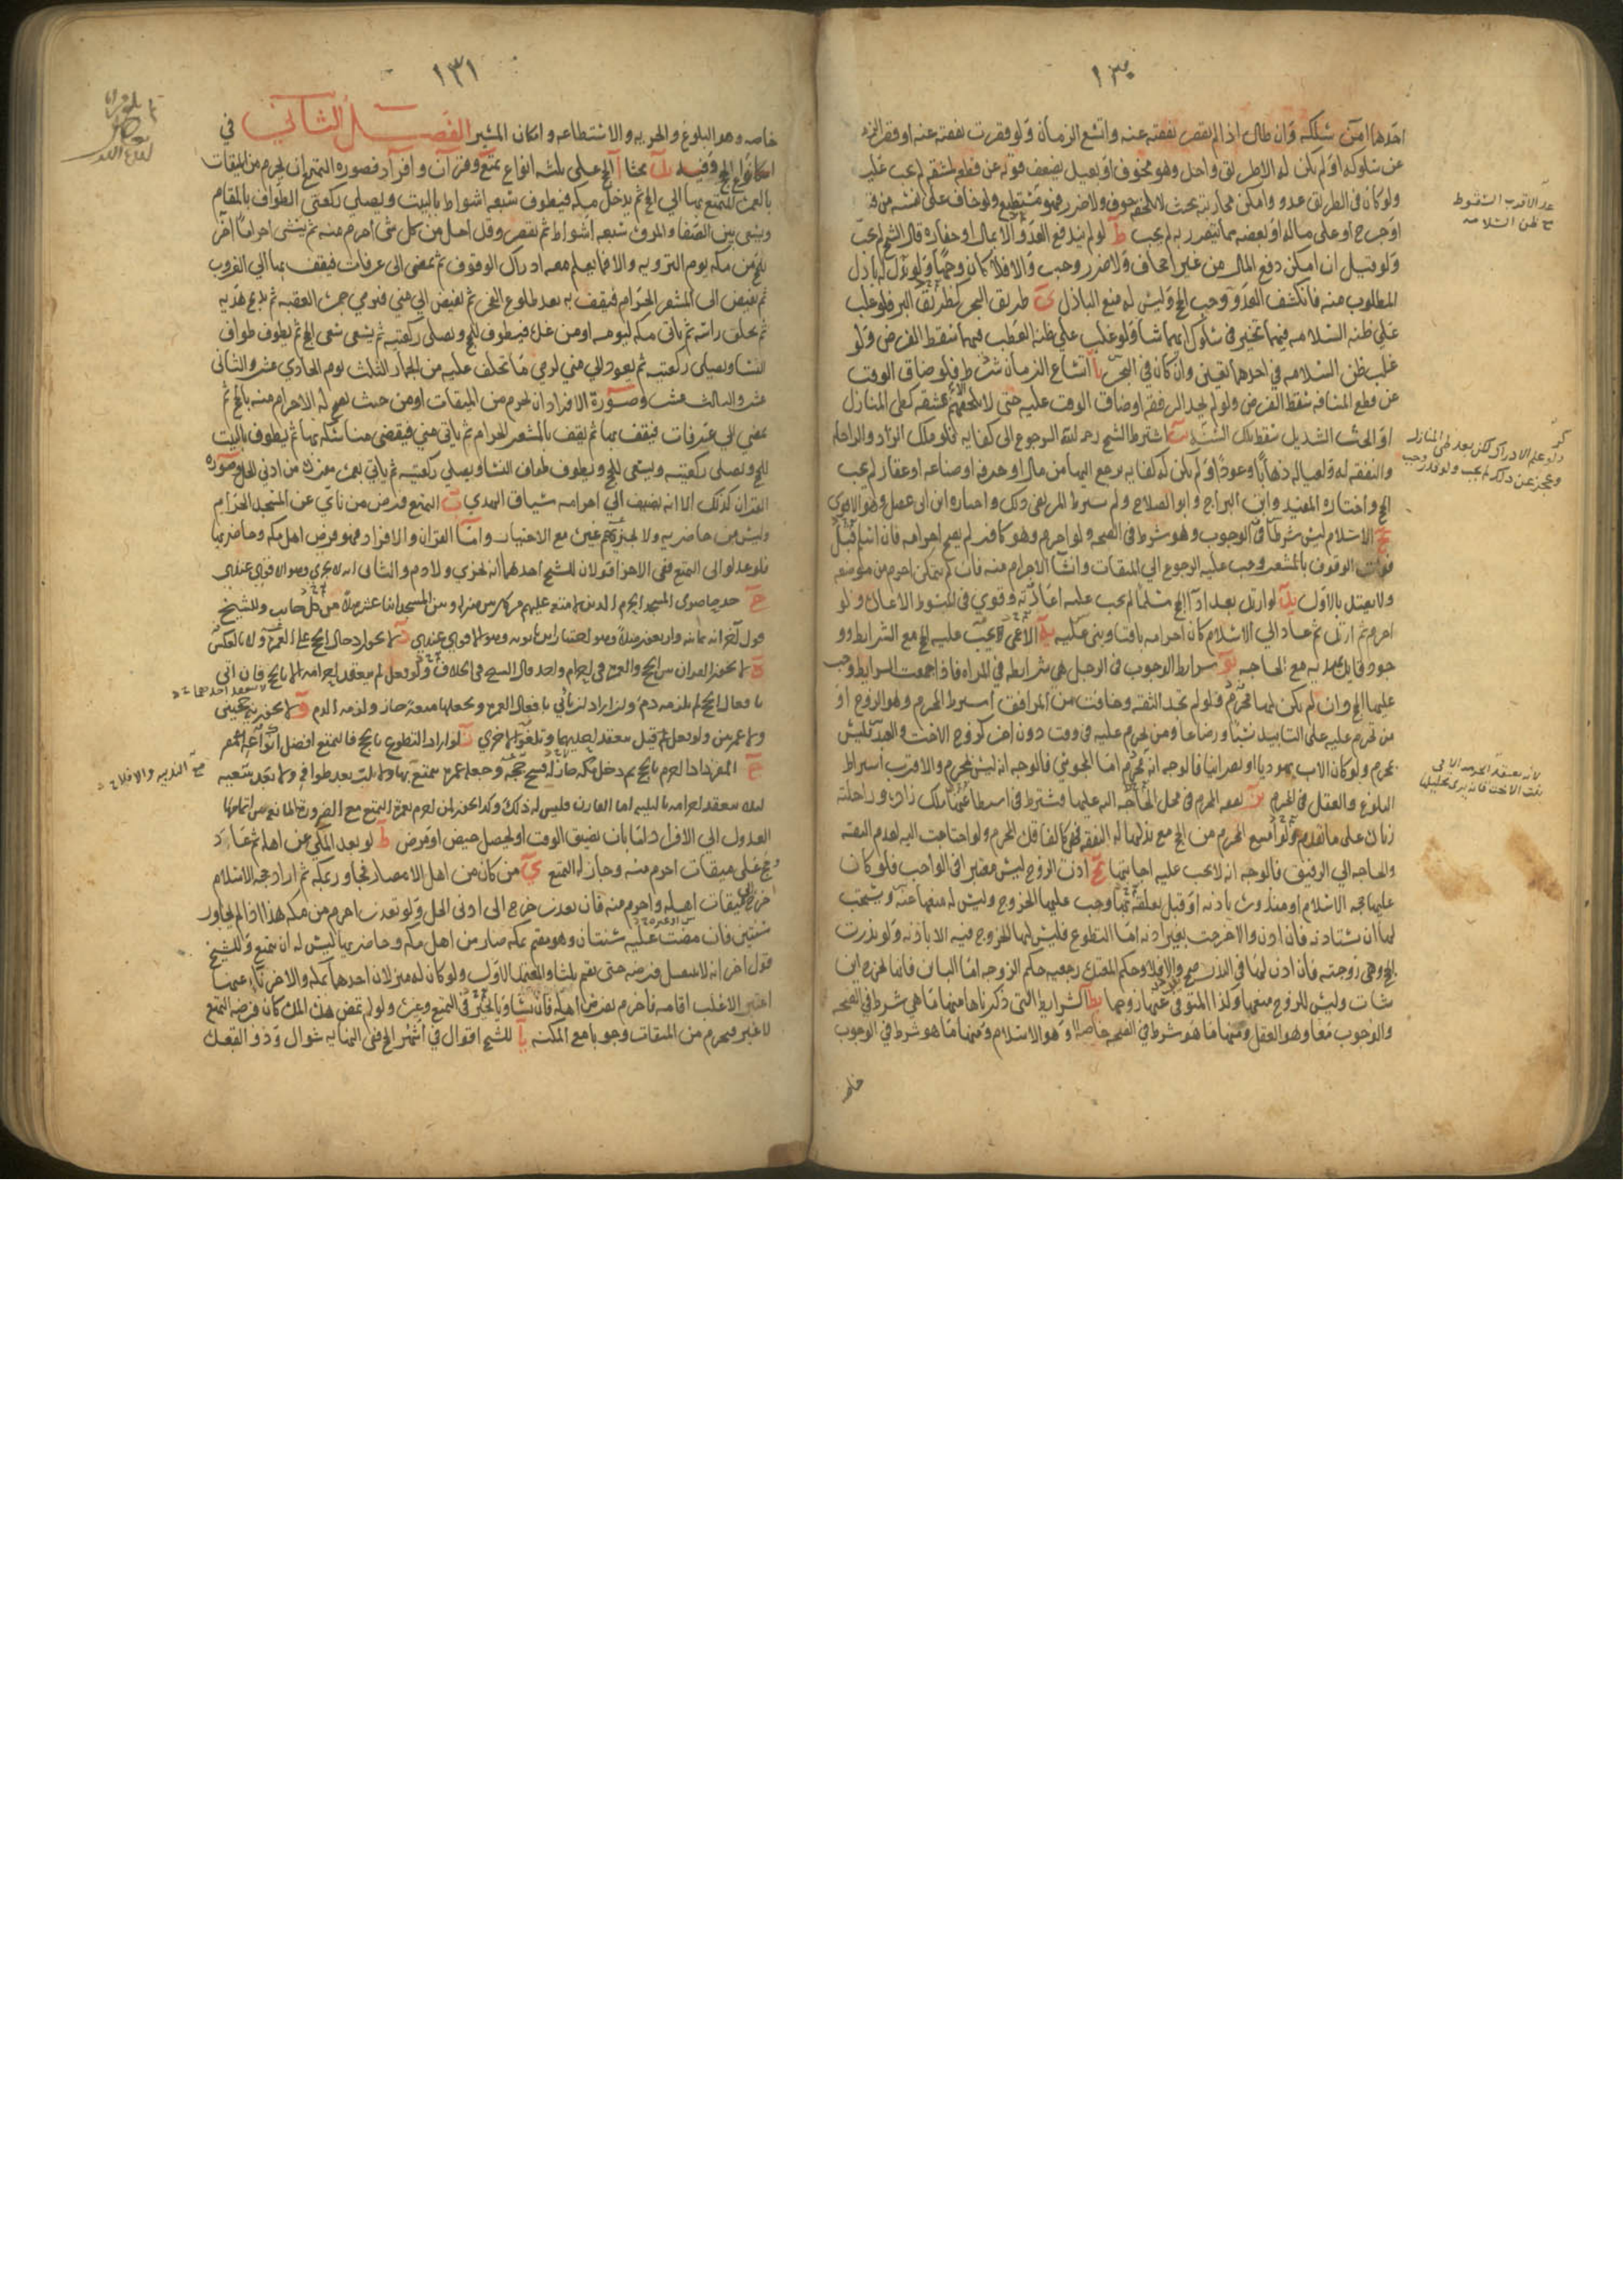 ١٣٠
احدها امن سلكه وان طال اذا لم يقصر نفقته عنه واتسع الزمان ولو قصرت نفقته عنه او قصر الزمان
عن سلوكه او لم يكن له الا طريق واحد وهو مخوف او بعيد يضعف قوته عن قطعه لمشقة لم يجب عليه
ولو كان في الطريق عدو وامكن محاربته بحيث لا يلحقه خوف ولا ضرر فهو مستطيع ولو خاف على نفسه من قتل
او جرح او على ماله او بعضه مما يتضرر به لم يجب ط لو لم يندفع العدو الا بمال او خفارة قال الشيخ لم يجب
ولو قيل ان امكن دفع المال من غير اجحاف ولا ضرر وجب والا فلا كان وجها ولو بذل له باذل
المطلوب منه فانكشف العدو وجب الحج وليس له منع الباذل ي طريق البحر كطريق البر فلو غلب
على ظنه السلامة فيهما تخير في سلوك ايهما شاء ولو غلب على ظنه العطب فيهما سقط الفرض ولو
غلب ظن السلامة في احدهما تعين وان كان في البحر يا اتساع الزمان شرط فلو ضاق الوقت
عن قطع المسافة سقط الفرض ولو لم يجد الرفقة او ضاق الوقت عليه حتى لا يلحقهم الا بمشقة كطي المنازل
او الحث الشديد سقط تلك السنة يب اشترط الشيخ رحمه الله الرجوع الى كفاية فلو ملك الزاد والراحلة
والنفقة له ولعياله ذهابا وعودا ولم يكن له كفاية يرجع اليها من مال او حرفة او صناعة او عقار لم يجب
الحج واختاره المفيد وابن البراج وابو الصلاح ولم يشترط المرتضى ذلك واختاره ابن ابي عقيل وهو الاقوى
يج الاسلام ليس شرطا في الوجوب وهو شرط في الصحة ولو احرم وهو كافر لم يصح احرامه فان اسلم قبل
فوات الوقوف بالمشعر وجب عليه الرجوع الى الميقات وانشاء الاحرام منه فان لم يتمكن احرم من موضعه
ولا يعتد بالاول يد لو ارتد بعد اداء الحج مسلما لم يجب عليه اعادته وقوى في المبسوط الاعادة ولو
احرم ثم ارتد ثم عاد الى الاسلام كان احرامه باقيا وبنى عليه يه الاعمى يجب عليه الحج مع الشرايط ووجود
قايد يهديه مع الحاجة يو شرايط الوجوب في الرجل هي شرايطه في المراة فاذا اجتمعت الشرايط وجب
عليها الحج وان لم يكن لها محرم ولو لم تجد الثقة وخافت من المرافق اشترط المحرم وهو الزوج او
من تحرم عليه على التابيد نسبا ورضاعا ومن تحرم عليه في وقت دون اخر كزوج الاخت والعبد ليس
بمحرم ولو كان الاب يهوديا او نصرانيا فالوجه انه محرم اما المجوسي فالوجه انه ليس بمحرم والاقرب اشتراط
البلوغ والعقل في المحرم يز نفقة المحرم في محل الحاجة اليه عليها فيشترط في استطاعتها ملك زاده وراحلته
زيادة على ما تقدم ولو امتنع المحرم من الحج مع بذلها له النفقة فهي كالفاقدة للمحرم ولو احتاجت اليه لعدم الثقة
والحاجة الى الرفيق فالوجه انه لا يجب عليه اجابتها يح اذن الزوج ليس معتبرا في الواجب فلو كان
عليها حجة الاسلام او منذورة باذنه او قبل تعلقه بها وجب عليها الخروج وليس له منعها عنه ويستحب
لها ان تستاذنه فان اذن والا خرجت بغير اذنه اما التطوع فليس لها الخروج فيه الا باذنه ولو نذرت
الحج وهي زوجته فان اذن لها في النذر صح والا فلا وحكم المعتدة رجعية حكم الزوجة اما الباين فانها تخرج اين
شاءت وليس للزوج منعها وكذا المتوفى عنها زوجها يط الشرايط التي ذكرناها منها ما هي شرط في الصحة
والوجوب معا وهو العقل ومنها ما هو شرط في الصحة خاصة وهو الاسلام ومنها ما هو شرط في الوجوب
خاصه
عد الاقرب السقوط
مع ظن السلامة
ولو علم الادراك لكن بعد طي المنازل
وعجز عن ذلك لم يجب ولو قدر وجب
١٣١
خاصه وهو البلوغ والحريه والاستطاعه وامكان المسير الفصل الثاني في
انواع الحج وفيه يب بحثا ا الحج على ثلثه انواع تمتع وقران وافراد فصوره التمتع ان يحرم من الميقات
بالعمرة المتمتع بها الى الحج ثم يدخل مكه فيطوف سبعه اشواط بالبيت ويصلي ركعتي الطواف بالمقام
ويسعى بين الصفا والمروة سبعه اشواط ثم يقصر وقد احل من كل شي احرم منه ثم ينشي احراما اخر
للحج من مكه يوم الترويه والا فما يعلم معه ادراك الوقوف ثم يمضي الى عرفات فيقف بها الى الغروب
ثم يفيض الى المشعر الحرام فيقف به بعد طلوع الفجر ثم يفيض الى منى فيرمي جمرة العقبه ثم يذبح هديه
ثم يحلق راسه ثم ياتي مكه ليومه او من غده فيطوف للحج ويصلي ركعتيه ثم يسعى سعي الحج ثم يطوف طواف
النساء ويصلي ركعتيه ثم يعود الى منى لرمي ما تخلف عليه من الجمار الثلث يوم الحادي عشر والثاني
عشر والثالث عشر وصورة الافراد ان يحرم من الميقات او من حيث يصح له الاحرام منه بالحج ثم
يمضي الى عرفات فيقف بها ثم يقف بالمشعر الحرام ثم ياتي منى فيقضي مناسكه بها ثم يطوف بالبيت
للحج ويصلي ركعتيه ويسعى للحج ويطوف طواف النساء ويصلي ركعتيه ثم ياتي بعمرة مفردة من ادنى الحل وصوره
القران كذلك الا انه يضيف الى احرامه سياق الهدي ب التمتع فرض من نأى عن المسجد الحرام
وليس من حاضريه ولا يجزيهم غيره مع الاختيار واما القران والافراد فهو فرض اهل مكه وحاضريها
فلو عدلوا الى التمتع ففي الاجزاء قولان للشيخ احدهما انه يجزي ولا دم والثاني انه لا يجزي وهو الاقوى عندي
ج حد حاضري المسجد الحرام الذين لا متعة عليهم من كان بين منزله وبين المسجد اثنا عشر ميلا من كل جانب وللشيخ
قول اخر انه ثمانيه واربعون ميلا وهو اختيار ابن بابويه وهو الاقوى عندي د لا يجوز ادخال الحج على العمرة ولا بالعكس
ه لا يجوز القران بين الحج والعمرة في احرام واحد قال الشيخ في الخلاف ولو فعل لم ينعقد احرامه الا بالحج فان اتى
بافعال الحج لم يلزمه دم وان اراد ان ياتي بافعال العمرة ويجعلها متعة جاز ولزمه الدم و لا يجوز نية حجتين
ولا عمرتين ولو فعل قيل ينعقد احديهما وتلغو الاخرى ز لو اراد التطوع بالحج فالتمتع افضل انواعه
ح المفرد اذا احرم بالحج ثم دخل مكه جاز له فسخ حجه وجعله عمرة يتمتع بها ولا يلبي بعد طوافه ولا بعد سعيه
لئلا ينعقد احرامه بالتلبيه اما القارن فليس له ذلك وكذا يجوز لمن احرم بعمرة التمتع مع الضرورة المانعه من اتمامها
العدول الى الافراد اما بان يضيق الوقت او يحصل حيض او مرض ط لو بعد المكي عن اهله ثم عاد
وحج على ميقات احرم منه وجاز له التمتع ي من كان من اهل الامصار فجاور بمكه ثم اراد حجه الاسلام
خرج الى ميقات اهله واحرم منه فان تعذر خرج الى ادنى الحل ولو تعذر احرم من مكه هذا اذا لم يجاور
سنتين فان مضت عليه سنتان وهو مقيم بمكه صار من اهل مكه وحاضريها ليس له ان يتمتع وللشيخ
قول اخر انه لا ينتقل فرضه حتى يقيم ثلثا والمعتمد الاول ولو كان له منزلان احدهما بمكه والاخر ناء عنها
اعتبر الاغلب اقامه فاحرم بفرض اهله فان تساويا تخير في التمتع وغيره ولو لم تمض هذه المدة كان فرضه التمتع
لا غير فيحرم من الميقات وجوبا مع المكنه يا للشيخ اقوال في اشهر الحج ففي النهايه شوال وذو القعدة